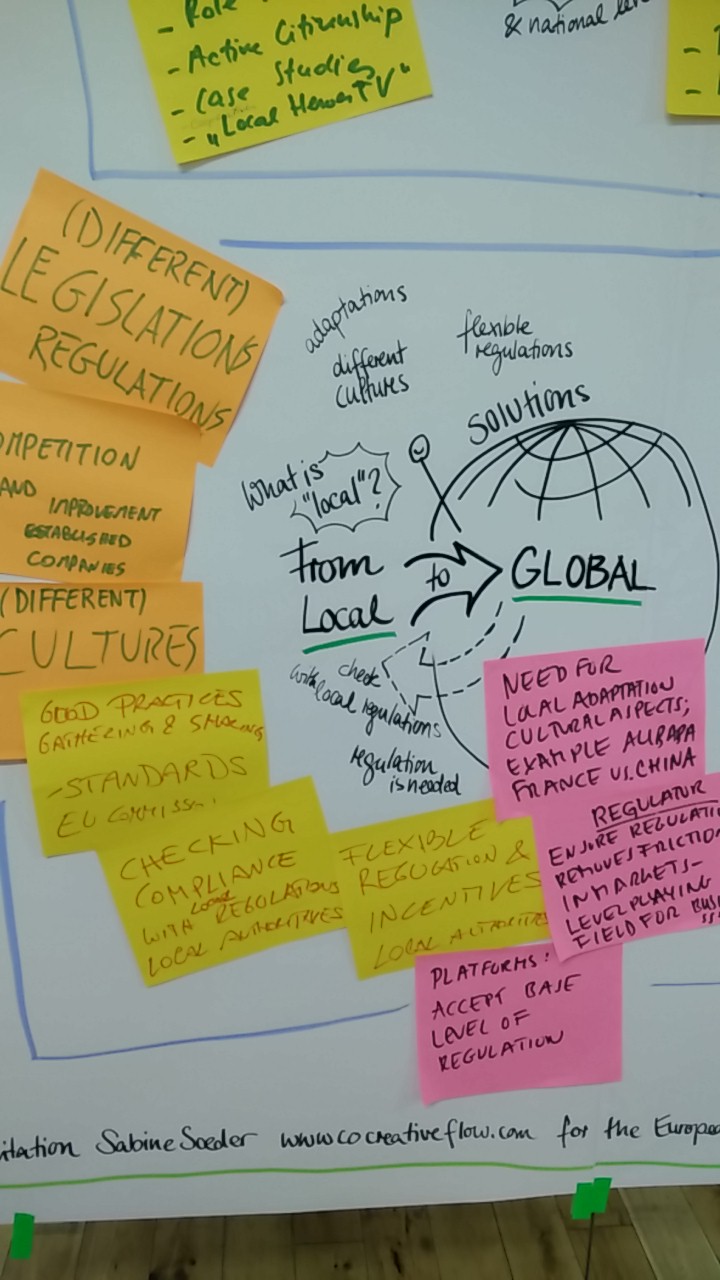 - Role
- Active Citizenship
- Case Studies
- "Local Heroes TV"
& national
(DIFFERENT)
LEGISLATIONS
REGULATIONS
OMPETITION
AND IMPROVEMENT
ESTABLISHED
COMPANIES
(DIFFERENT)
CULTURES
adaptations
different
cultures
flexible
regulations
solutions
What is
"local"?
From
to
Local
GLOBAL
check
with local regulations
regulation
is needed
GOOD PRACTICES
GATHERING & SHARING
-STANDARDS
EU
CHECKING
COMPLIANCE
WITH LOCAL REGULATIONS
LOCAL AUTHORITIES
FLEXIBLE
REGULATION &
INCENTIVES
LOCAL AUTHORITIES
NEED FOR
LOCAL ADAPTATION
CULTURAL ASPECTS;
EXAMPLE ALIBABA
FRANCE VS. CHINA
REGULATOR
ENSURE REGULATIO
REMOVES FRICTION
IN MARKETS-
LEVEL PLAYING
FIELD FOR
PLATFORMS:
ACCEPT BASE
LEVEL OF
REGULATION
itation Sabine Soeder www.cocreativeflow.com for the Europea